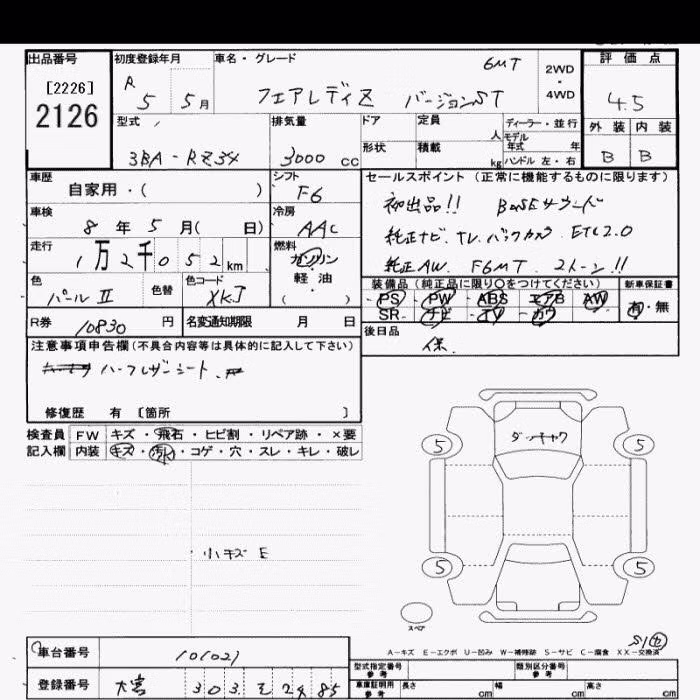 出品番号 初度登録年月 車名・グレード 評価点
[2226]
2126
R 5 5月
フェアレディZ バージョンST 6MT
2WD
・
4WD
4.5
型式 排気量 ドア 定員 人 ディーラー・並行 外装 内装
モデル年式 年
3BA-RZ34 3000 cc 形状 積載 kg ハンドル 左・右 B B
車歴 シフト セールスポイント (正常に機能するものに限ります)
自家用・( ) F6
初出品!! BOSEサウンド
車検 冷房
8年5月( 日) AAC
純正ナビ. TV. バックカメラ. ETC2.0
走行 燃料
1万2千052km ガソリン
純正AW. F6MT. 2トーン!!
色 色替 色コード 軽油
パールII XKJ ( )
装備品 (純正品に限り○をつけてください) 新車保証書
PS・PW・ABS・エアB・AW
SR・ナビ・TV・カワ
有・無
R券 10830円 名変通知期限 月 日
後日品
保.
注意事項申告欄(不具合内容等は具体的に記入して下さい)
ハーフレザーシート.
修復歴 有 [箇所 ]
検査員 FW キズ・飛石・ヒビ割・リペア跡・×要
記入欄 内装 キズ・汚れ・コゲ・穴・スレ・キレ・破レ
ダッチャク
5 5
小キズ E
5 5
スペア
A-キズ E-エクボ U-凹み W-補修跡 S-サビ C-腐食 XX-交換済
車台番号 101027
型式指定番号 参考 類別区分番号 参考
登録番号 大宮 303 2485
車庫証明用 参考 長さ cm 幅 cm 高さ cm